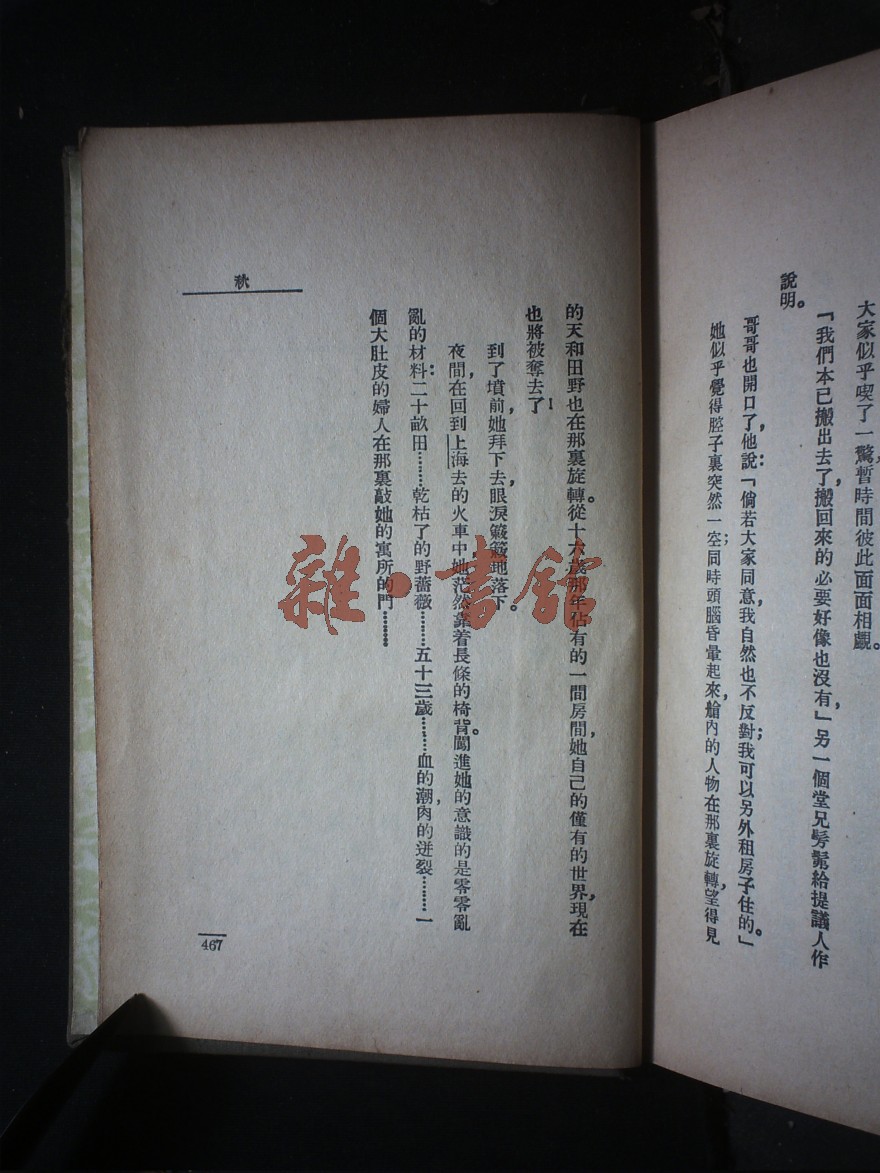 大家似乎喫了一驚，暫時間彼此面面相覷。
「我們本已搬出去了，搬回來的必要好像也沒有，」另一個堂兄髣髴給提議人作
說明。
哥哥也開口了，他說：「倘若大家同意，我自然也不反對；我可以另外租房子住的。」
她似乎覺得腔子裏突然一空；同時頭腦昏暈起來，艙內的人物在那裏旋轉，望得見
的天和田野也在那裏旋轉。從十六歲那年佔有的一間房間，她自己的僅有的世界，現在
也將被奪去了！
到了墳前，她拜下去，眼淚簌簌地落下。
夜間，在回到上海去的火車中，她茫然靠着長條的椅背。闖進她的意識的是零零亂
亂的材料：二十畝田………乾枯了的野薔薇………五十三歲………血的潮，肉的迸裂………一
個大肚皮的婦人在那裏敲她的寓所的門………
秋
467
雜·書館